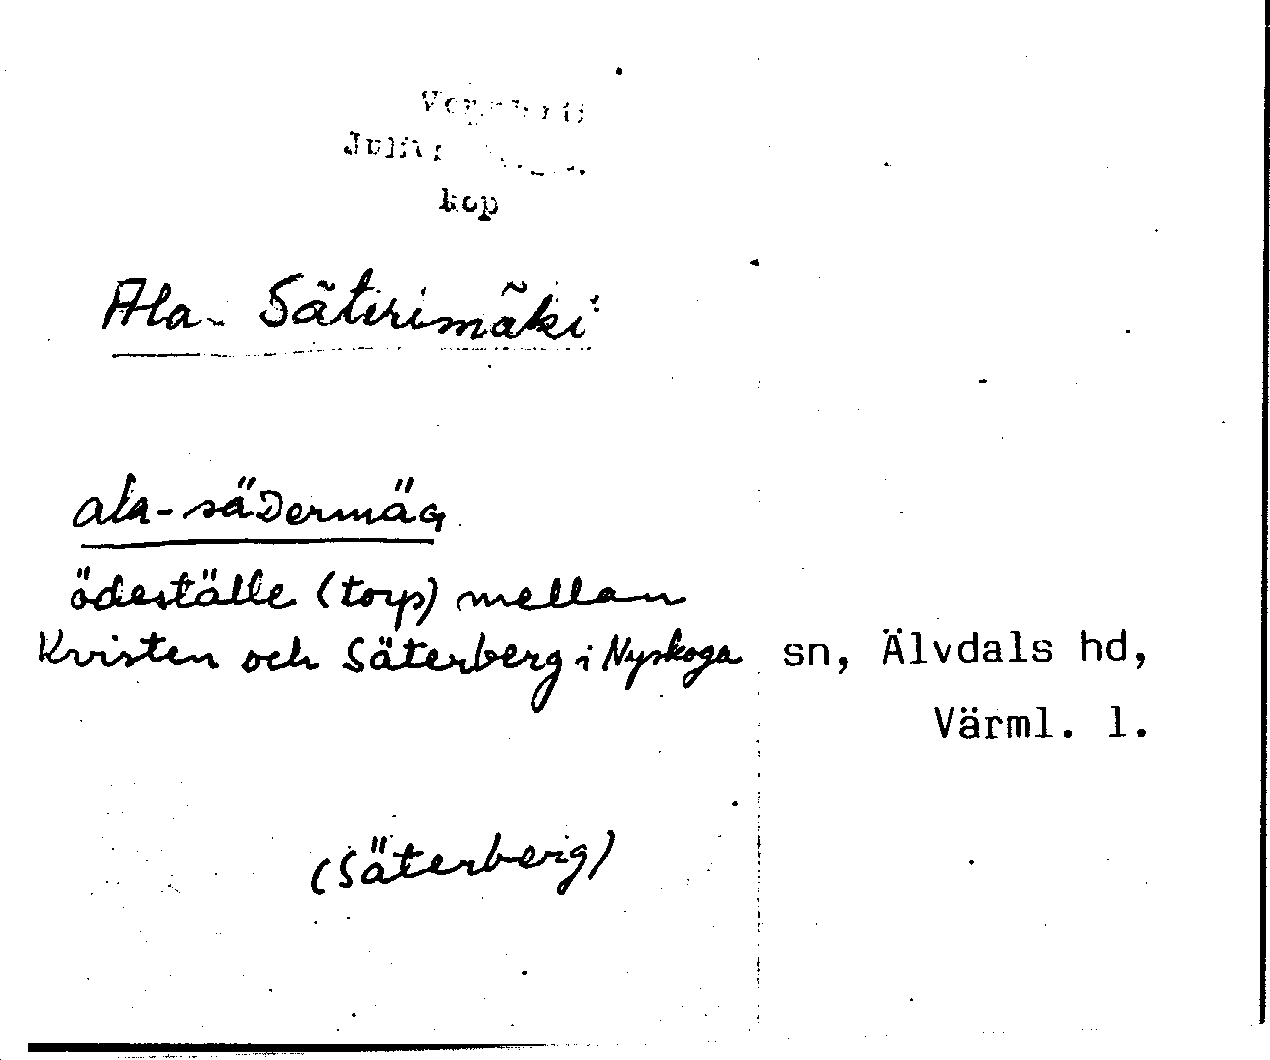 kop
Ala-Säterimäki
ala-säDermäG
ödeställe (torp) mellan
Kvisten och Säterberg i Nyskoga sn, Älvdals hd,
Värml. l.
(Säterberg)